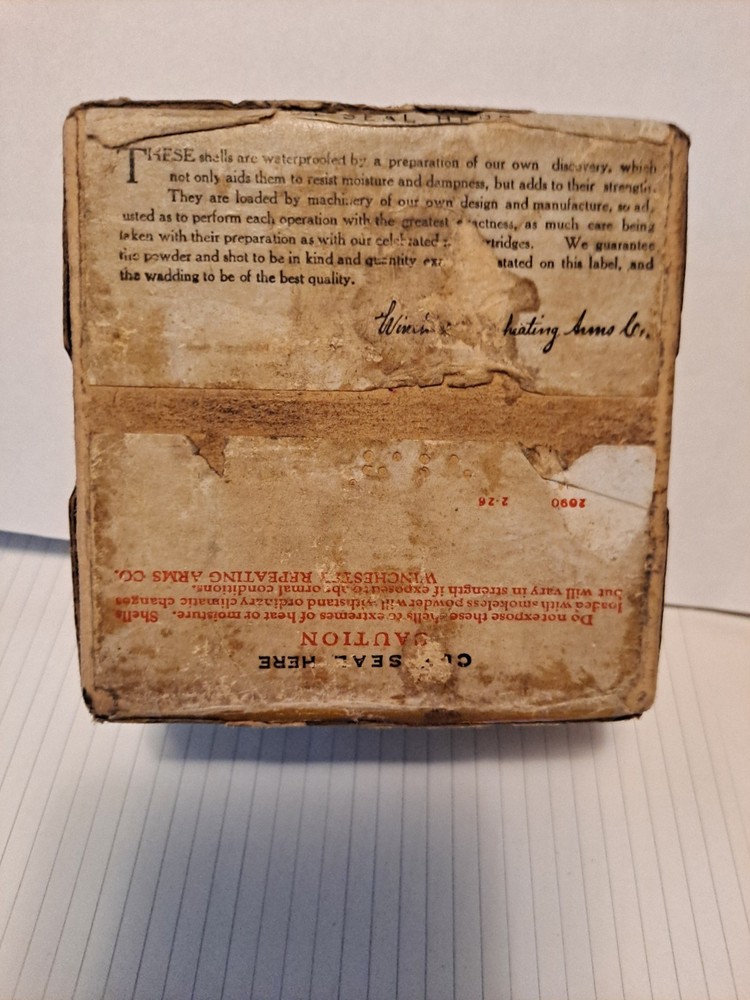 SEAL HERE
THESE shells are waterproofed by a preparation of our own discovery, which
not only aids them to resist moisture and dampness, but adds to their strength.
They are loaded by machinery of our own design and manufacture, so ad
usted as to perform each operation with the greatest actness, as much care being
taken with their preparation as with our celebrated tridges. We guarantee
the powder and shot to be in kind and quantity stated on this label, and
the wadding to be of the best quality.
eating Arms Co.
CUT SEAL HERE
CAUTION
Do not expose these shells to extremes of heat or moisture. Shells
loaded with smokeless powder will withstand ordinary climatic changes
but will vary in strength if exposed to abnormal conditions.
WINCHESTER REPEATING ARMS CO.
2090 2-26